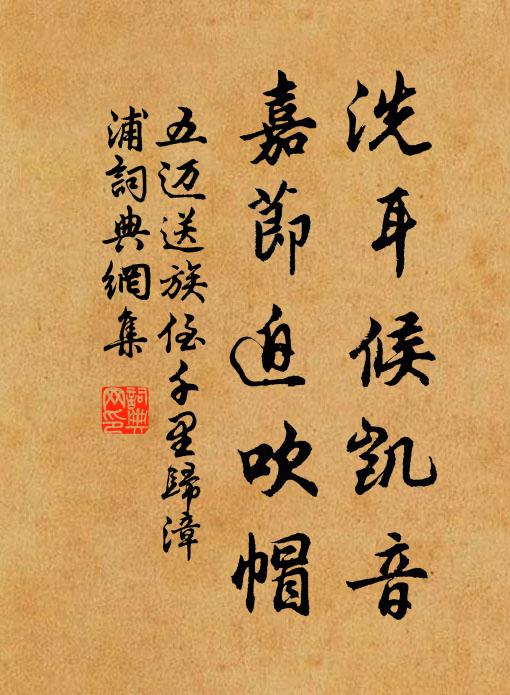 洗耳候凯音
嘉節迫吹帽
五迈送族侄千里歸漳
浦詞典網集
詞典
网印